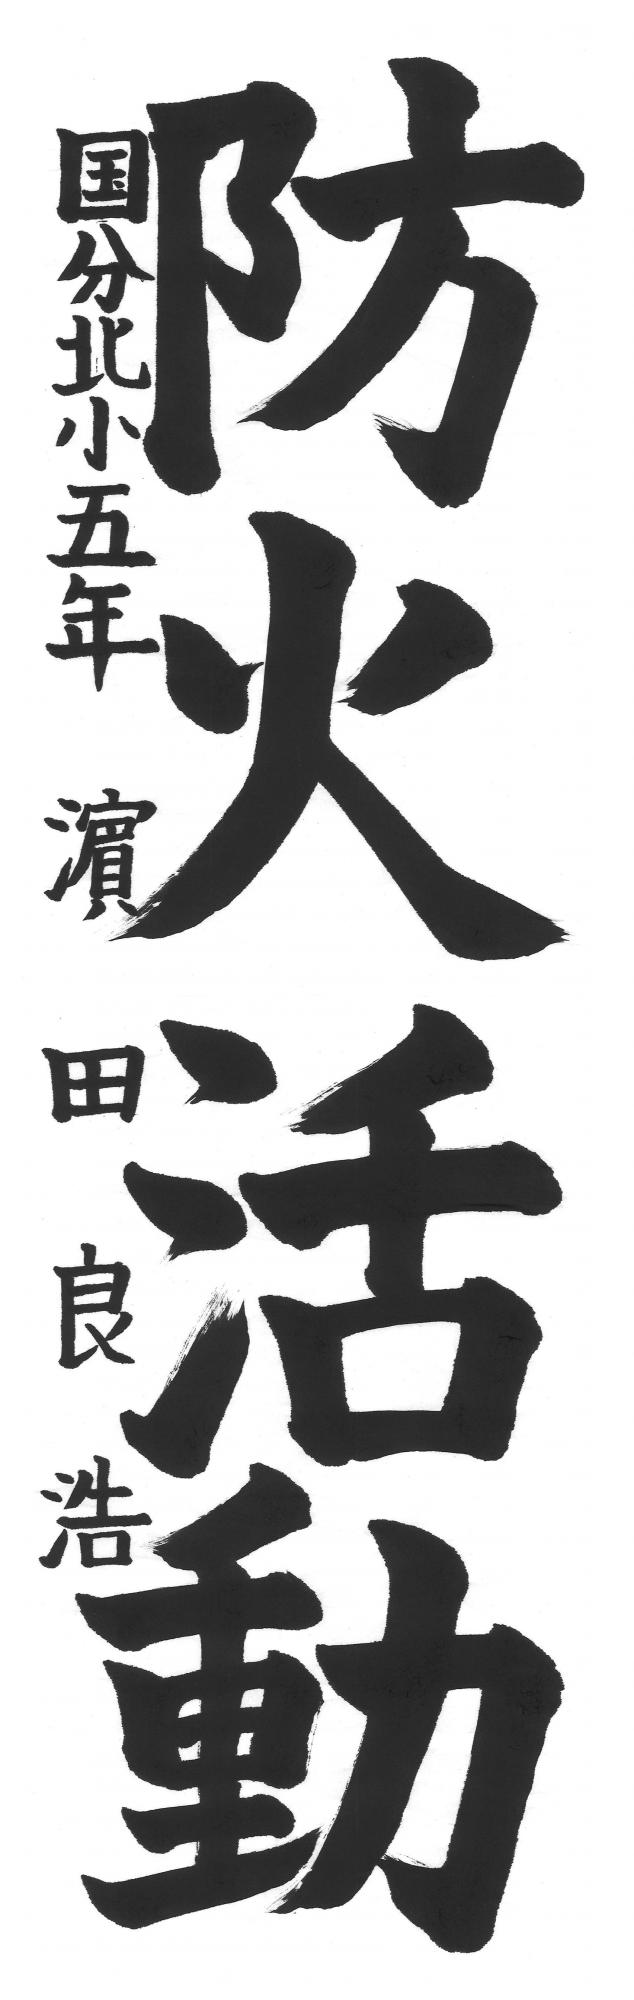 防火活動
国分北小五年 濵田良浩